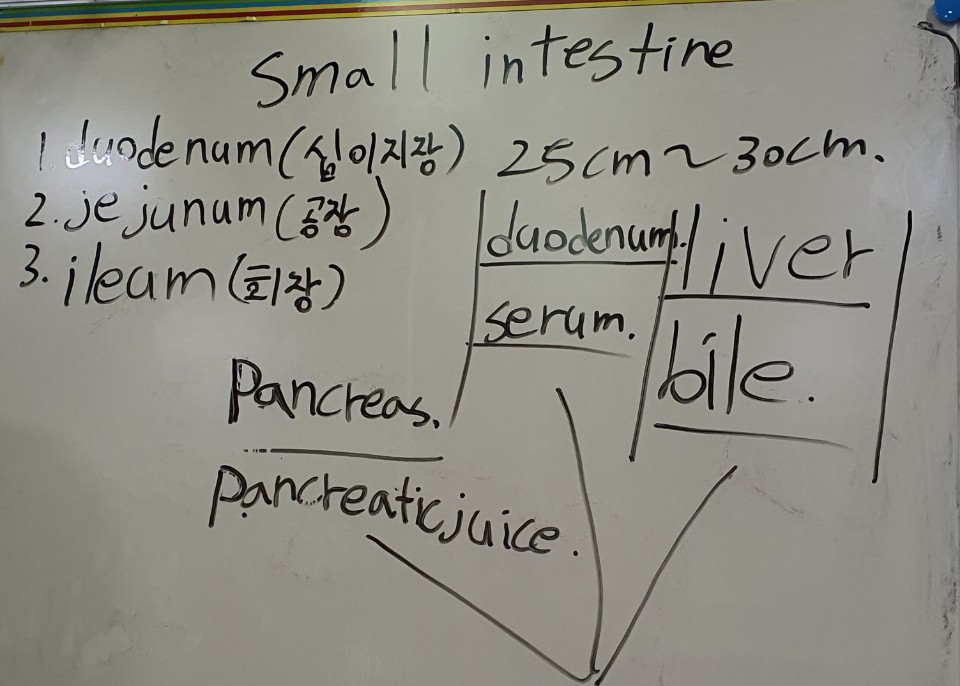 Small intestine
1. duodenum (십이지장) 25cm ~ 30cm.
2. jejunum (공장)
3. ileum (회장)
duodenum.
serum.
liver
bile.
Pancreas.
Pancreatic juice.